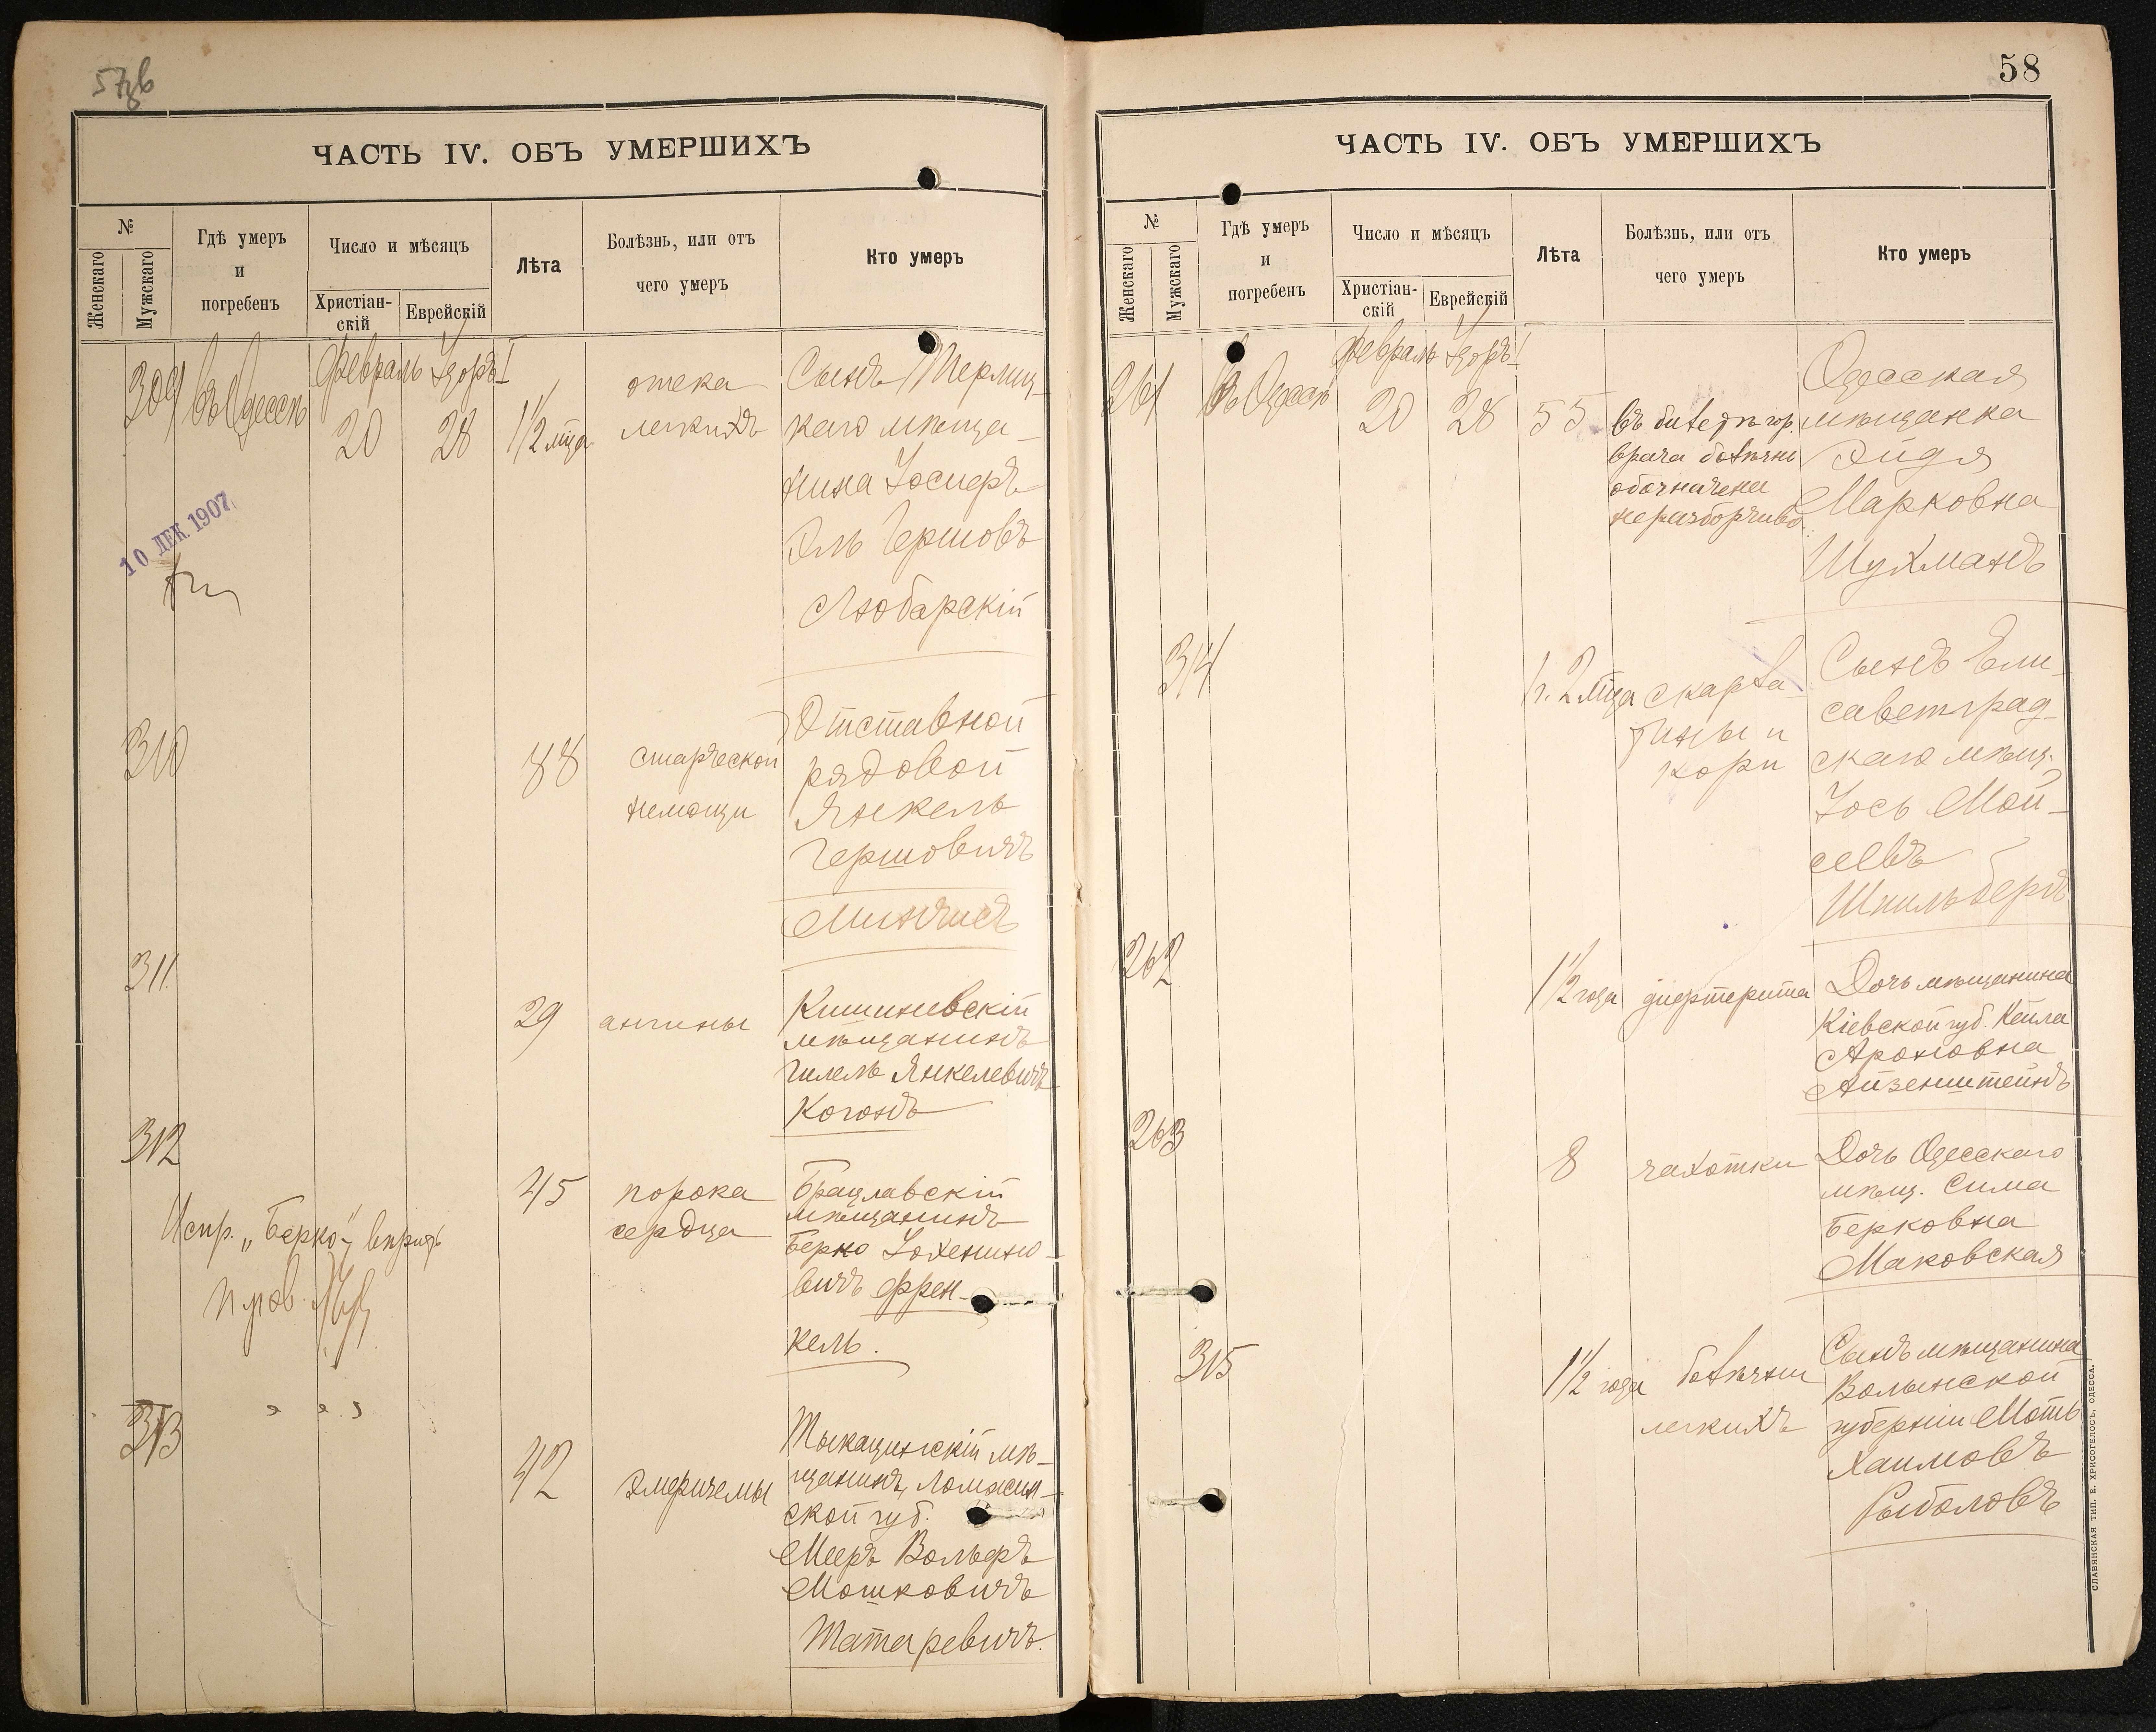 57об
ЧАСТЬ IV. ОБЪ УМЕРШИХЪ
№
Женскаго
Мужскаго
Гдѣ умеръ
и
погребенъ
Число и мѣсяцъ
Христіан-
скій
Еврейскій
Лѣта
Болѣзнь, или отъ
чего умеръ
Кто умеръ
309
въ Одессѣ
Февраль
20
28
1½ мца
отека
легкихъ
Сынъ
каго мѣща-
нина Іосифъ
Эль Гершовъ
Любарскій
10 ДЕК. 1907
310
88
старческой
немощи
Отставной
рядовой
Янкель
Гершовичъ
311
29
ангины
Кишиневскій
мѣщанинъ
Гилель Янкелевичъ
Когонъ
312
45
порока
сердца
Брацлавскій
мѣщанинъ
Берко
вичъ Френ-
кель.
Испр. „Берко“
313
42
эмфиземы
мѣ-
щанинъ, Ломжин-
ской губ.
Мееръ Вольфъ
Мошковичъ
Татаревичъ.
58
ЧАСТЬ IV. ОБЪ УМЕРШИХЪ
№
Женскаго
Мужскаго
Гдѣ умеръ
и
погребенъ
Число и мѣсяцъ
Христіан-
скій
Еврейскій
Лѣта
Болѣзнь, или отъ
чего умеръ
Кто умеръ
261
въ Одессѣ
Февраль
20
28
55
въ билетѣ гор.
врача болѣзнь
обозначена
неразборчиво
Одесская
мѣщанка
Эйдя
Марковна
Шухманъ
314
1 г. 2 мца
скарла-
тины и
кори
Сынъ Ели-
саветград-
скаго мѣщ.
Іось Мой-
сеевъ
Шпильбергъ
262
1½ года
дифтерита
Дочь мѣщанина
Кіевской губ. Кейла
Ароновна
Айзенштейнъ
263
8
чахотки
Дочь Одесскаго
мѣщ. Сима
Берковна
Маковская
315
1½ года
болѣзни
легкихъ
Сынъ мѣщанина
Волынской
губерніи Моть
Хаимовъ
Рыболовъ
СЛАВЯНСКАЯ ТИП. Е. ХРИСОГЕЛОСЪ, ОДЕССА.